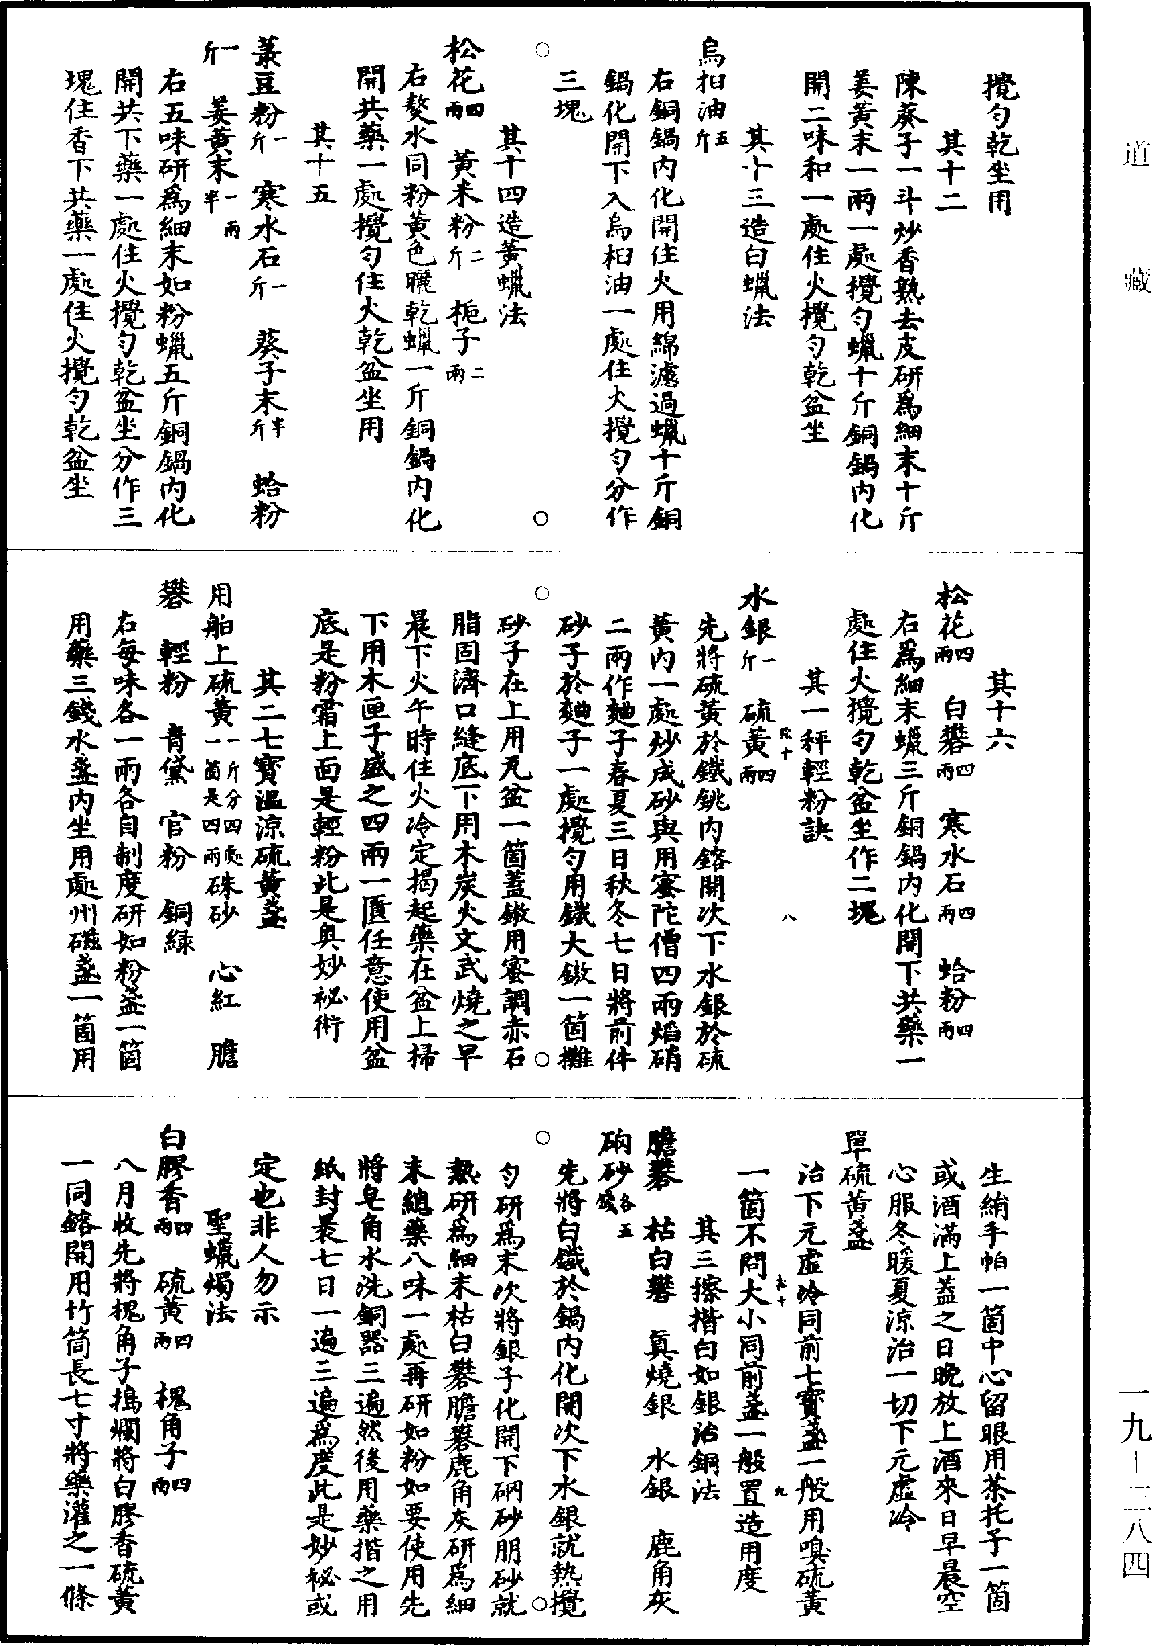 攪勻乾坐用
其十二
陳葵子一斗炒香熟去皮研爲細末十斤
姜黃末一兩一處攪勻蠟十斤銅鍋內化
開二味和一處住火攪勻乾盆坐
其十三造白蠟法
烏桕油五斤
右銅鍋內化開住火用綿濾過蠟十斤銅
鍋化開下入烏桕油一處住火攪勻分作
三塊
其十四造黃蠟法
松花四兩 黃米粉二斤 梔子二兩
右熬水同粉黃色曬乾蠟一斤銅鍋內化
開共藥一處攪勻住火乾盆坐用
其十五
菉豆粉一斤 寒水石一斤 葵子末半斤 蛤粉
一斤 姜黃末一兩半
右五味研爲細末如粉蠟五斤銅鍋內化
開共下藥一處住火攪勻乾盆坐分作三
塊住香下共藥一處住火攪勻乾盆坐
其十六
松花四兩 白礬四兩 寒水石四兩 蛤粉四兩
右爲細末蠟三斤銅鍋內化開下共藥一
處住火攪勻乾盆坐作二塊
其一秤輕粉訣
水銀一斤 硫黃四兩
先將硫黃於鐵銚內鎔開次下水銀於硫
黃內一處炒成砂與用蜜陀僧四兩焰硝
二兩作麯子春夏三日秋冬七日將前件
砂子於麯子一處攪勻用鐵大鏊一箇攤
砂子在上用瓦盆一箇蓋鏊用蜜調赤石
脂固濟口縫底下用木炭火文武燒之早
晨下火午時住火冷定揭起藥在盆上掃
下用木匣子盛之四兩一匱任意使用盆
底是粉霜上面是輕粉此是奧妙祕術
其二七寶溫涼硫黃盞
用舶上硫黃一斤分四處一箇是四兩 硃砂 心紅 膽
礬 輕粉 青黛 官粉 銅綠
右每味各一兩各自制度研如粉盞一箇
用藥三錢水盞內坐用處州磁盞一箇用
生綃手帕一箇中心留眼用茶托子一箇
或酒滿上蓋之日晚放上酒來日早晨空
心服冬暖夏涼治一切下元虛冷
單硫黃盞
治下元虛冷同前七寶盞一般用嗅硫黃
一箇不問大小同前盞一般置造用度
其三擦揩白如銀治銅法
膽礬 枯白礬 眞燒銀 水銀 鹿角灰
硇砂各五錢
先將白鐵於鍋內化開次下水銀就熱攪
勻研爲末次將銀子化開下硇砂朋砂就
熱研爲細末枯白礬膽礬鹿角灰研爲細
末總藥八味一處再研如粉如要使用先
將皂角水洗銅器三遍然後用藥揩之用
紙封裹七日一遍三遍爲度此是妙祕或
定也非人勿示
聖蠟燭法
白膠香四兩 硫黃四兩 槐角子四兩
八月收先將槐角子搗爛將白膠香硫黃
一同鎔開用竹筒長七寸將藥灌之一條
道藏
一九—二八四